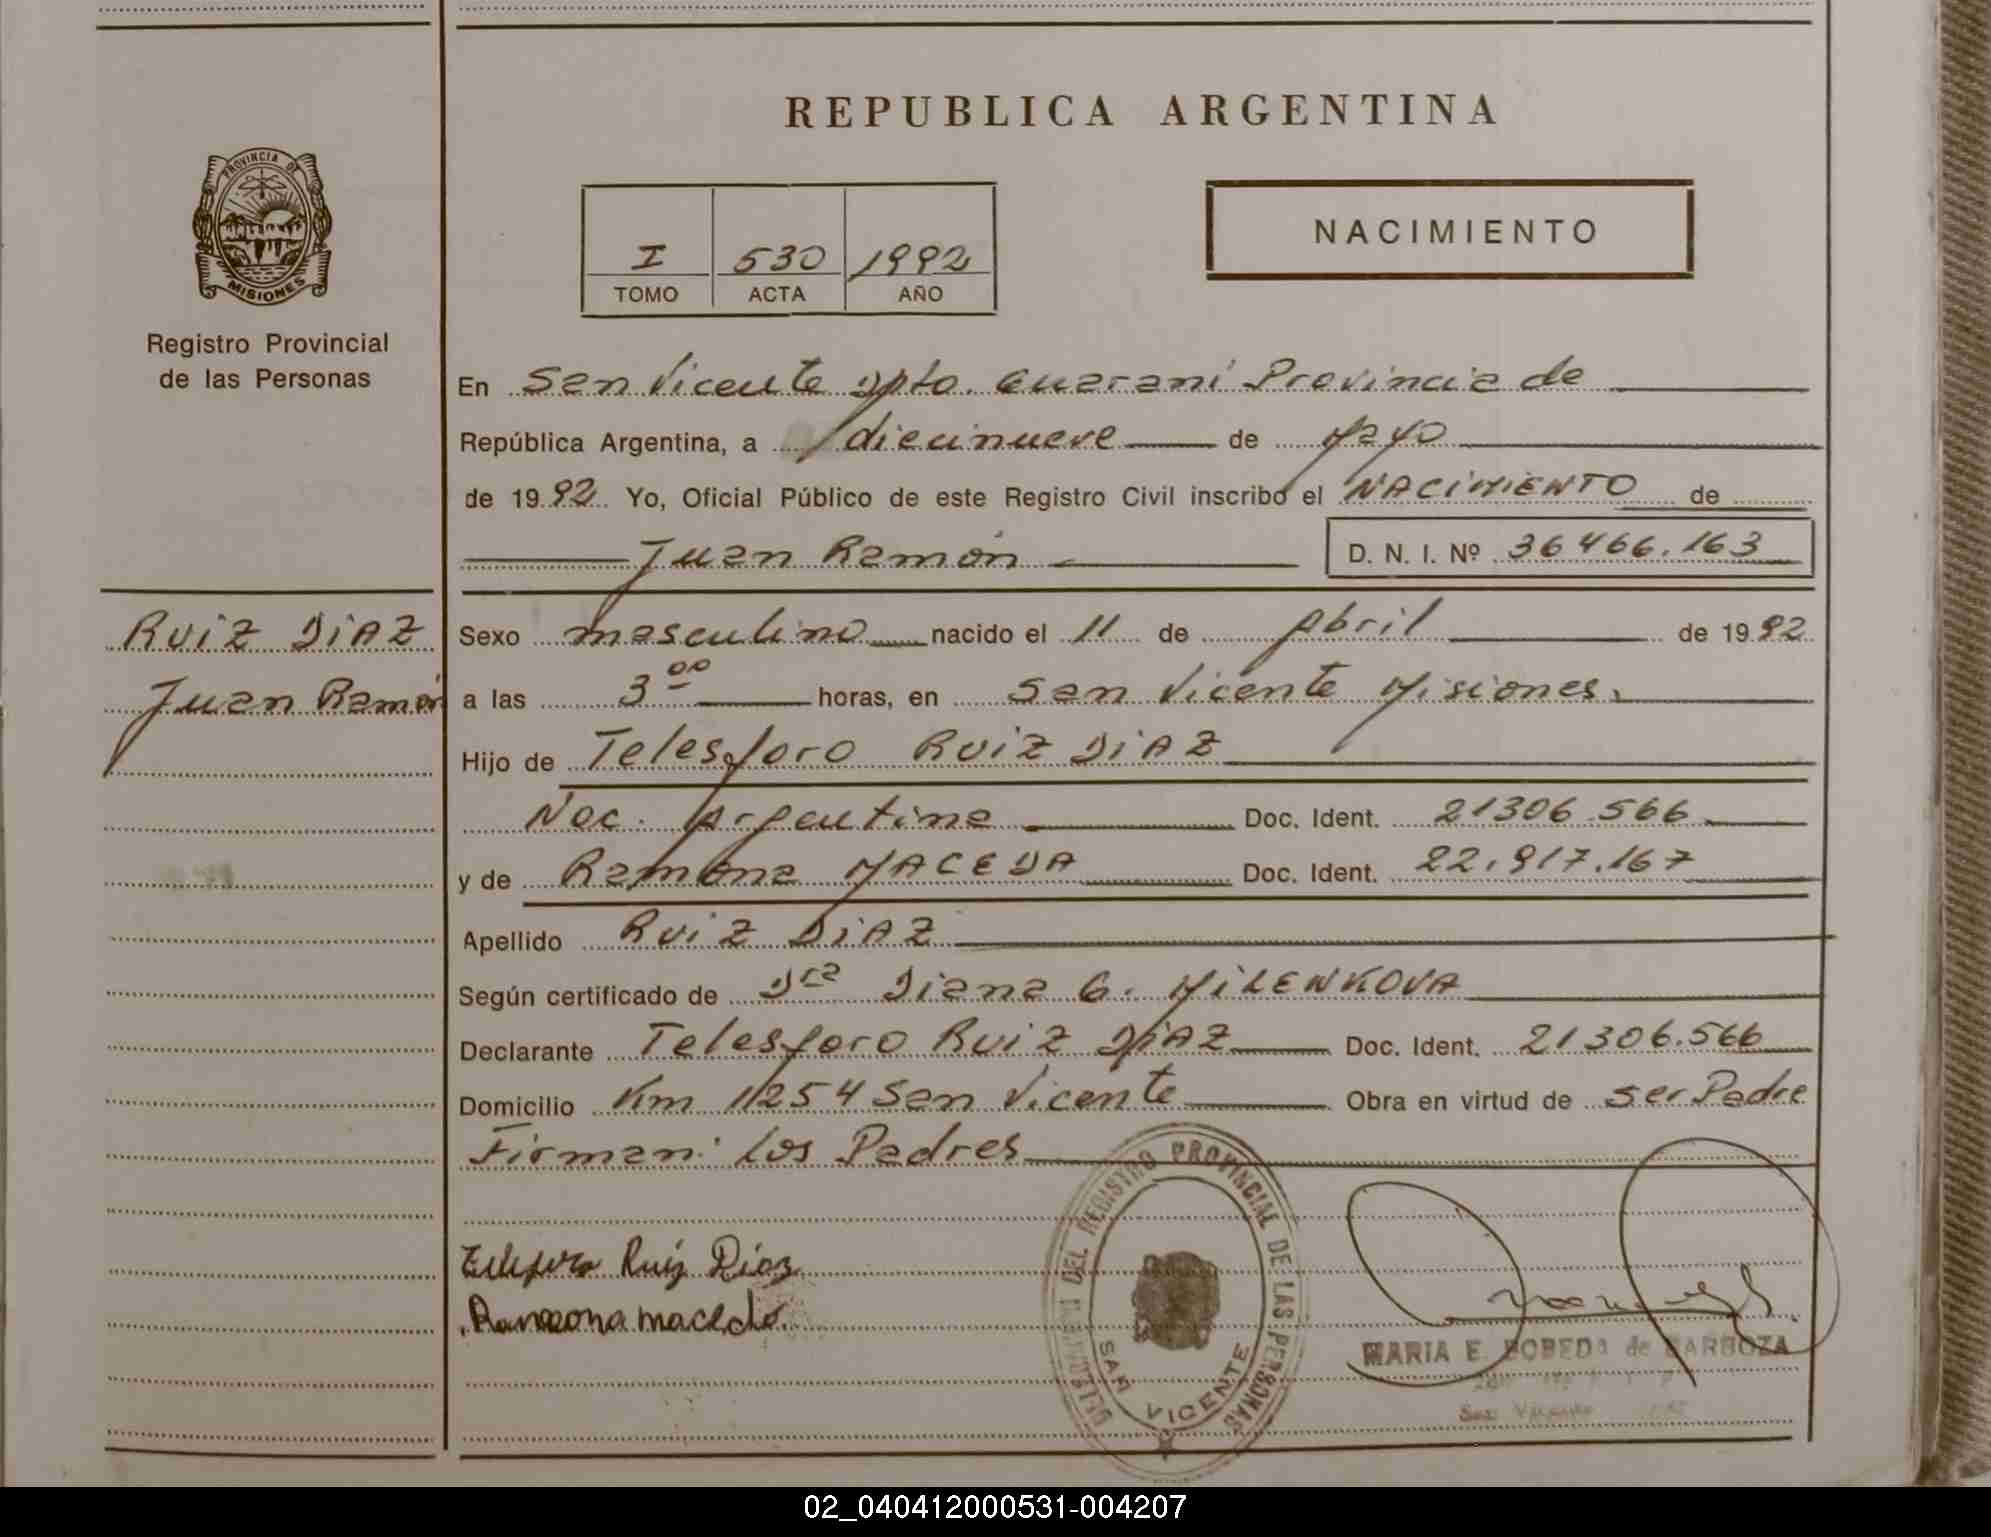 REPUBLICA ARGENTINA
PROVINCIA DE
MISIONES
Registro Provincial
de las Personas
I 530 1992
TOMO ACTA AÑO
NACIMIENTO
En San Vicente Dpto. Guaraní Provincia de
República Argentina, a diecinueve de Mayo
de 1992. Yo, Oficial Público de este Registro Civil inscribo el NACIMIENTO de
Juan Ramón D. N. I. Nº 36466.163
RUIZ DIAZ
Juan Ramón
Sexo masculino nacido el 11 de Abril de 1992
a las 3 00 horas, en San Vicente Misiones.
Hijo de Telesforo RUIZ DIAZ
Nac. Argentina Doc. Ident. 21306.566
y de Ramona MACEDA Doc. Ident. 22.917.167
Apellido RUIZ DIAZ
Según certificado de Dra Diana G. MILENKOVA
Declarante Telesforo RUIZ DIAZ Doc. Ident. 21306.566
Domicilio Km 1254 San Vicente Obra en virtud de ser Padre
Firman: los Padres
DEL REGISTRO PROVINCIAL DE LAS PERSONAS
SAN VICENTE
Ruiz Diaz
MARIA E. BOBEDA de BARBOZA
02_040412000531-004207